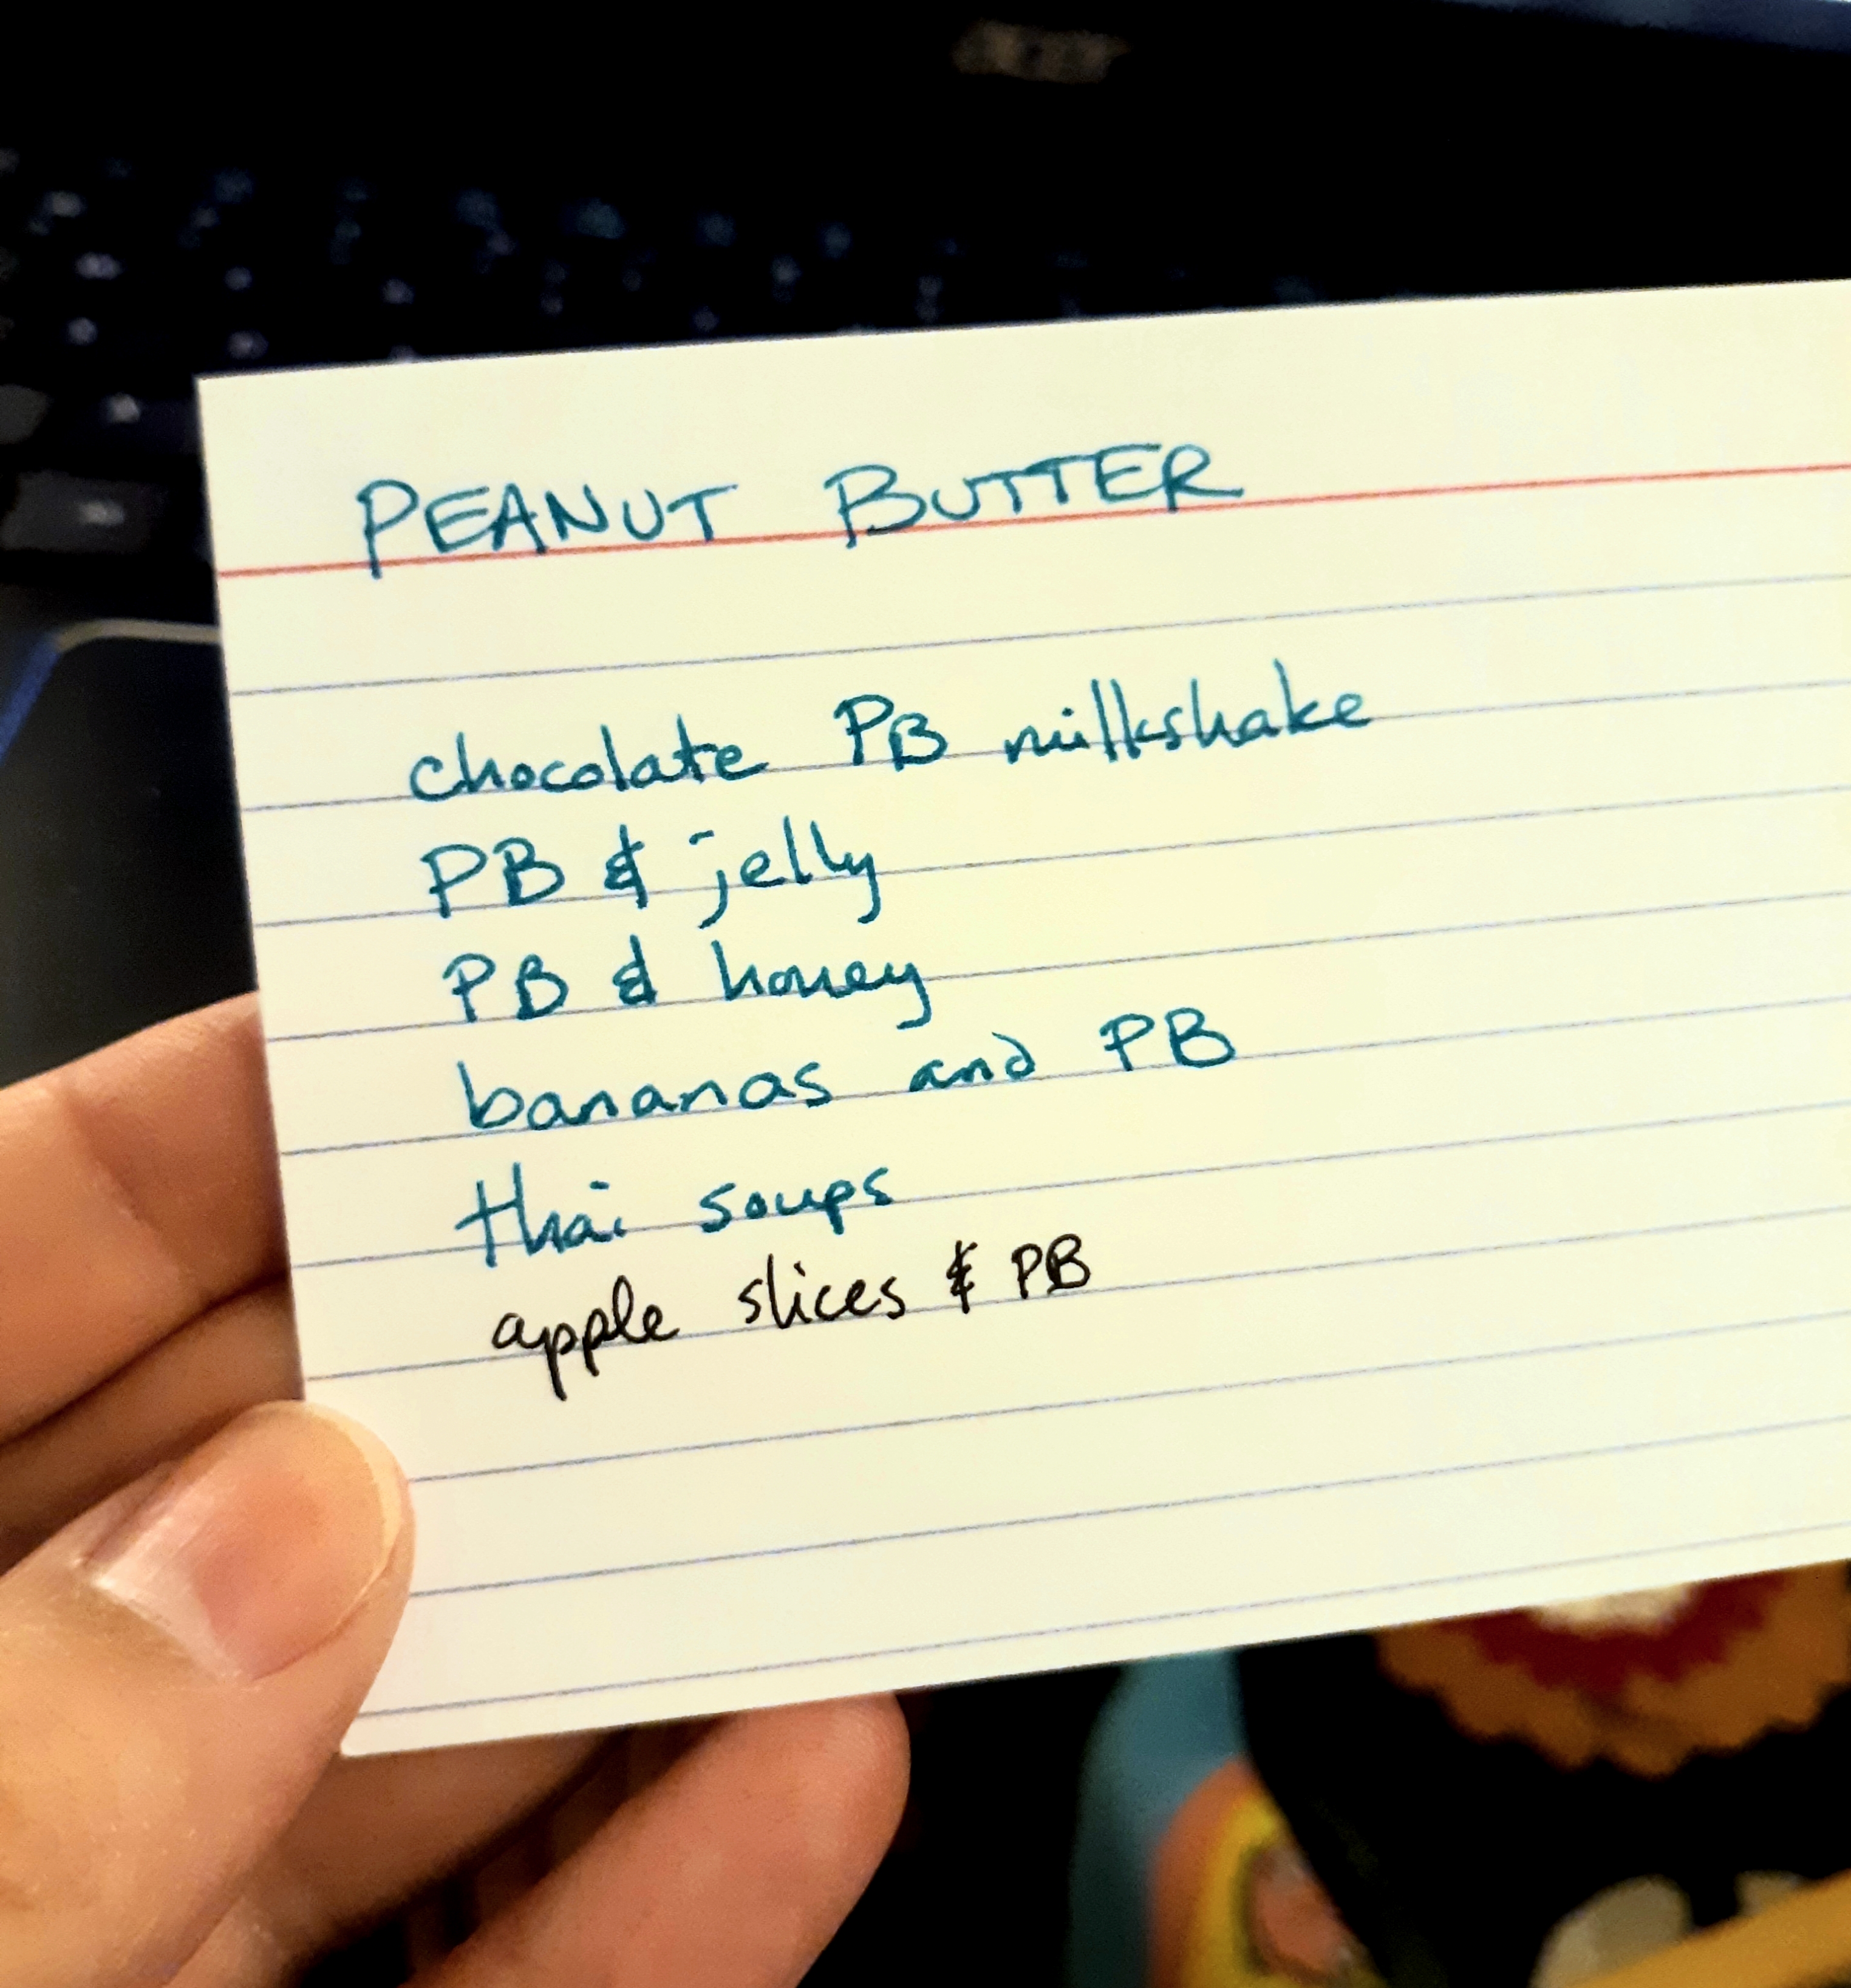 PEANUT BUTTER
chocolate PB milkshake
PB & jelly
PB & honey
bananas and PB
thai soups
apple slices & PB